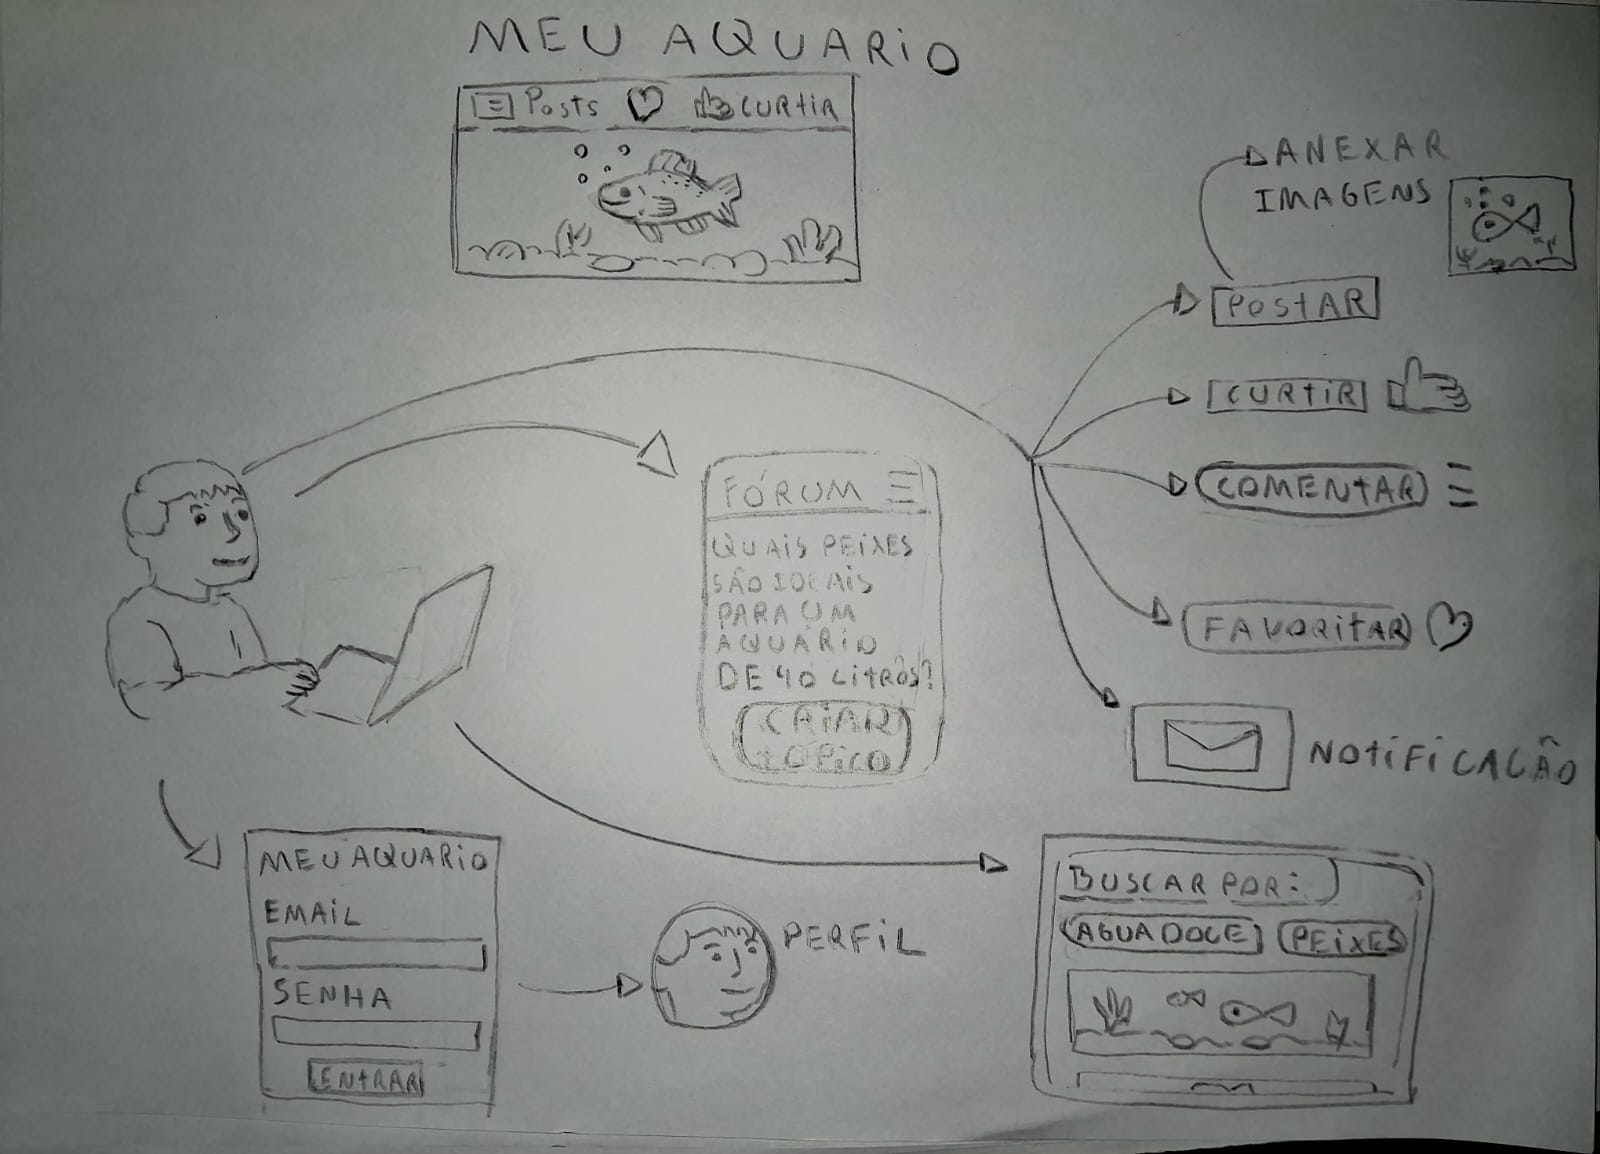 MEU AQUARIO
Posts CURtiR
ANEXAR
IMAGENS
POStAR
CURtiR
COMENTAR
FAVORitAR
NOtiFiCACÃO
FÓRUM
QUAiS PEiXES
SÃO IDEAiS
PARA UM
AQUÁRiO
DE 40 LitROS?
CRiAR
tÓPiCO
MEU AQUARiO
EMAiL
SENHA
ENtRAR
PERFiL
BUSCAR POR:
AGUA DOCE PEiXES